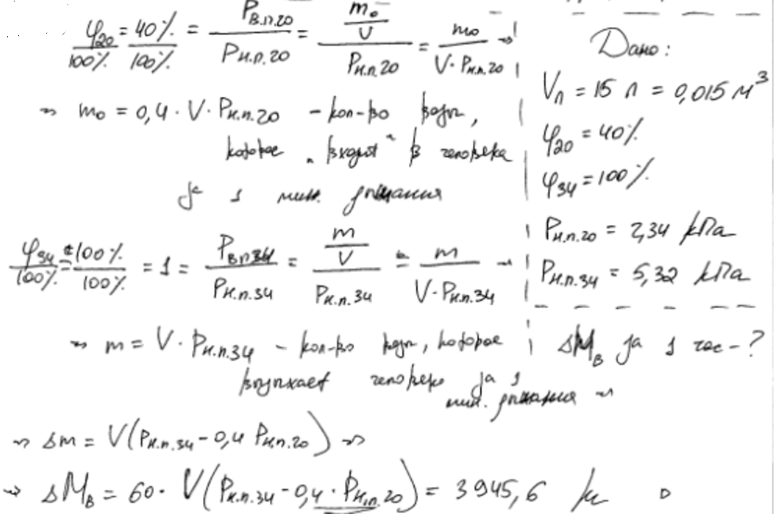 φ₂₀/100% = 40%/100% = Pв.п.20/Pн.п.20 = (m₀/V)/Pн.п.20 = m₀/(V·Pн.п.20) →
→ m₀ = 0,4·V·Pн.п.20 – кол-во воды,
которое „входит“ в человека
за 1 мин. дыхания
φ₃₄/100% = 100%/100% = 1 = Pвп34/Pн.п.34 = (m/V)/Pн.п.34 = m/(V·Pн.п.34) →
→ m = V·Pн.п.34 – кол-во воды, которое
выдыхает человек за 1
мин. дыхания →
→ Δm = V(Pн.п.34 – 0,4 Pн.п.20) →
→ ΔMв = 60·V(Pн.п.34 – 0,4·Pн.п.20) = 3945,6 кг
Дано:
Vл = 15 л = 0,015 м³
φ₂₀ = 40%
φ₃₄ = 100%
Pн.п.20 = 2,34 кПа
Pн.п.34 = 5,32 кПа
ΔMв за 1 час – ?